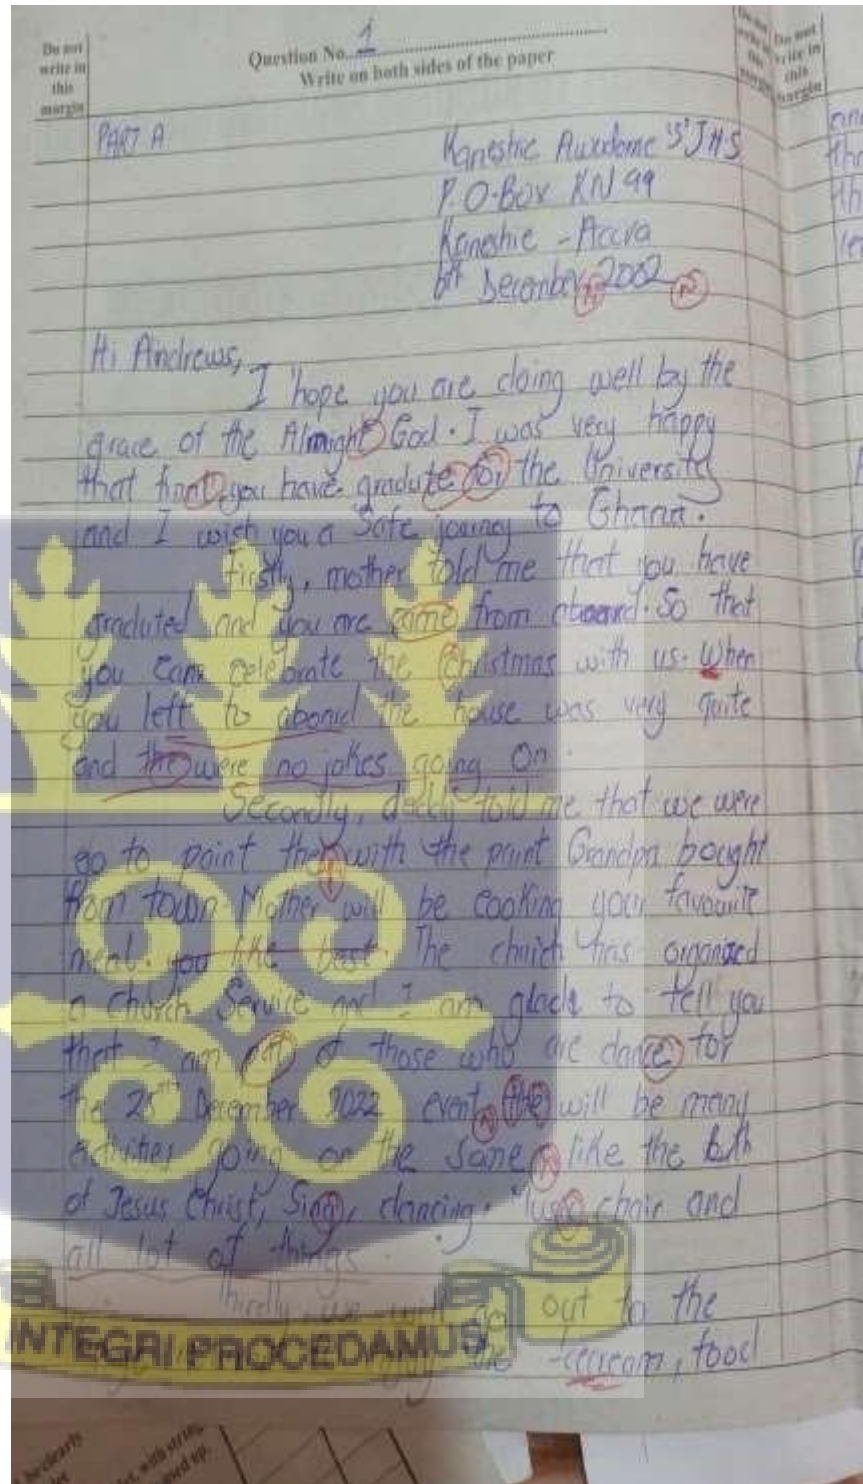 Do not
write in
this
margin
Question No. 1
Write on both sides of the paper
Do not
write in
this
margin
PART A
Kaneshie Awudome '5' JHS
P.O.Box KN 99
Kaneshie - Accra
6th December 2002
Hi Andrews,
I hope you are doing well by the
grace of the Almight God. I was very happy
that you have gradute for the University
and I wish you a Safe journey to Ghana.
Firstly, mother told me that you have
graduted and you are come from aboard. So that
you can celebrate the christmas with us. When
you left to aboard the house was very quite
and the were no jokes going On.
Secondly, daddy told me that we were
go to paint the with the paint Grandpa bought
from town Mother will be cooking your favourite
meal. you like best. The church has organized
a church Service and I am glad to tell you
that I am of those who are dance for
the 25th December 2022 event the will be many
activities going on the same like the birth
of Jesus Christ, Sing, dancing, chair and
all lot of things.
Thirdly, we will go out to the
icecream, food
INTEGRI PROCEDAMUS
be clearly
with string